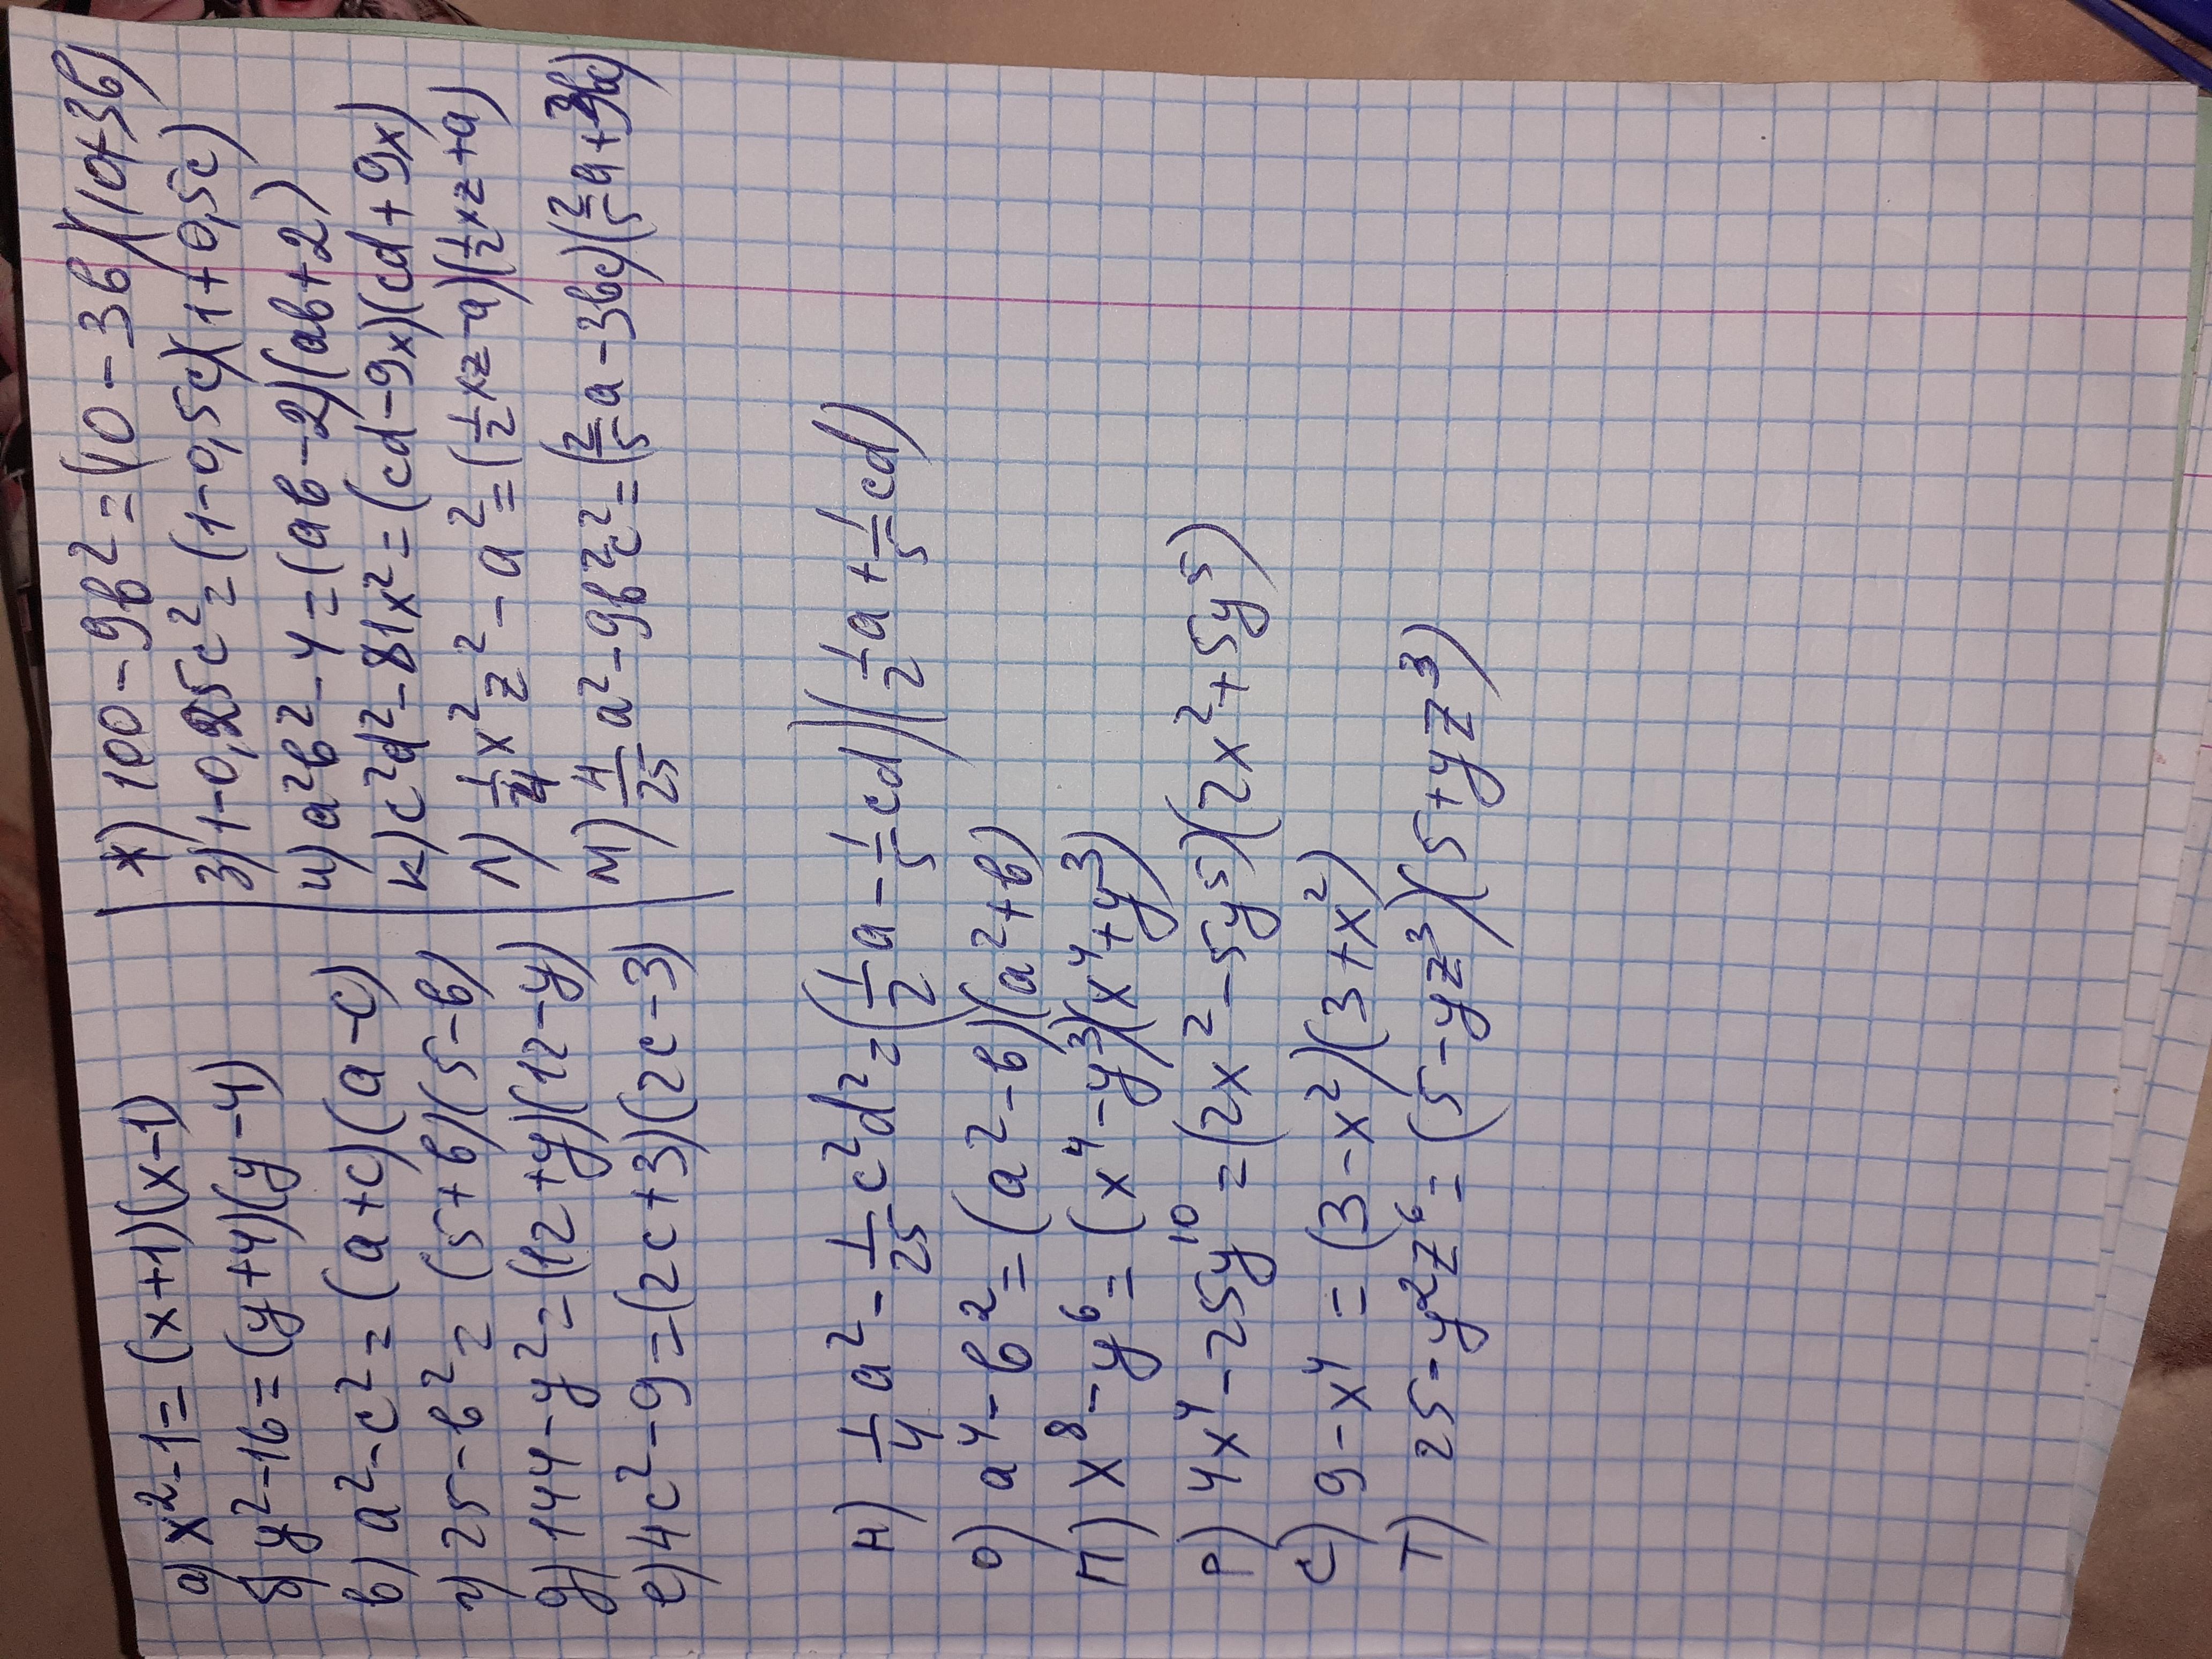 а) x²-1=(x+1)(x-1)
б) y²-16=(y+4)(y-4)
в) a²-c²=(a+c)(a-c)
г) 25-b²=(5+b)(5-b)
д) 144-y²=(12+y)(12-y)
е) 4c²-9=(2c+3)(2c-3)
ж) 100-9b²=(10-3b)(10+3b)
з) 1-0,25c²=(1-0,5c)(1+0,5c)
и) a²b²-4=(ab-2)(ab+2)
к) c²d²-81x²=(cd-9x)(cd+9x)
л) 1/4 x²z²-a²=(1/2 xz-a)(1/2 xz+a)
м) 4/25 a²-9b²c²=(2/5 a-3bc)(2/5 a+3bc)
н) 1/4 a²-1/25 c²d²=(1/2 a-1/5 cd)(1/2 a+1/5 cd)
о) a⁴-b²=(a²-b)(a²+b)
п) x⁸-y⁶=(x⁴-y³)(x⁴+y³)
р) 4x⁴-25y¹⁰=(2x²-5y⁵)(2x²+5y⁵)
с) 9-x⁴=(3-x²)(3+x²)
т) 25-y²z⁶=(5-yz³)(5+yz³)